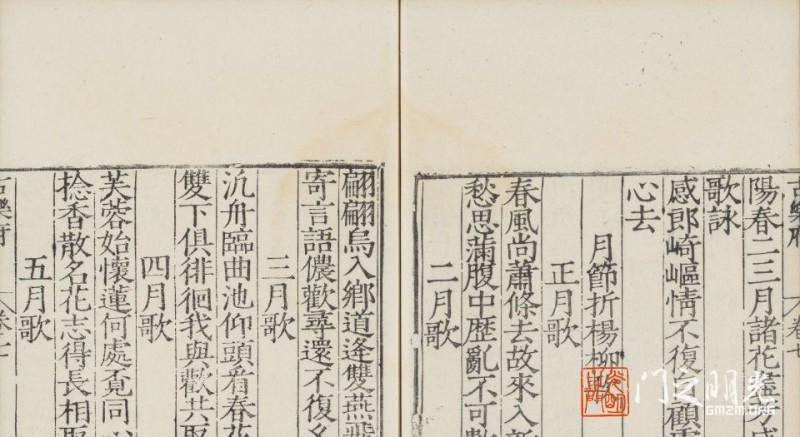 古樂府 卷七
陽春二三月諸花盡
歌詠
感郎崎嶇情不復自顧慮
心去
月節折楊柳歌
正月歌
春風尚蕭條去故來入新
愁思滿腹中歷亂不可數
二月歌
翩翩烏入鄉道逢雙燕飛
寄言語儂歡尋還不復
三月歌
汎舟臨曲池仰頭看春花
雙下俱徘徊我與歡共取
四月歌
芙蓉始懷蓮何處覓同心
捻香散名花志得長相取
五月歌
古樂府 卷七
门之明光
GMZM.ORG